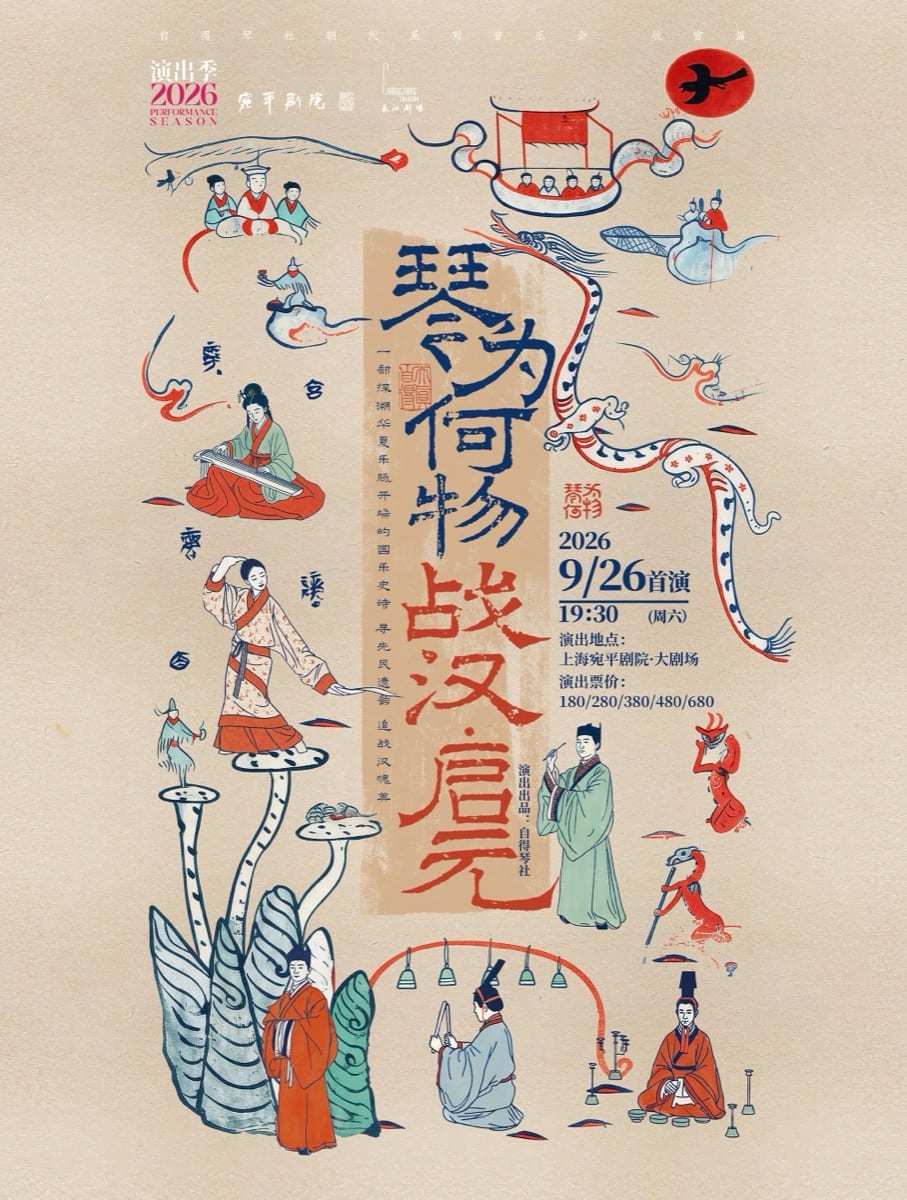 自得琴社朝代系列音乐会 故宫篇
演出季
2026
PERFORMANCE
SEASON
宛平剧院
长江剧场
琴为何物
战汉·启元
一部探溯华夏乐脉开端的国乐史诗 寻先民遗韵 追战汉魂舞
琴为何物
2026
9/26首演
19:30 (周六)
演出地点:
上海宛平剧院·大剧场
演出票价:
180/280/380/480/680
演出出品:自得琴社
宫